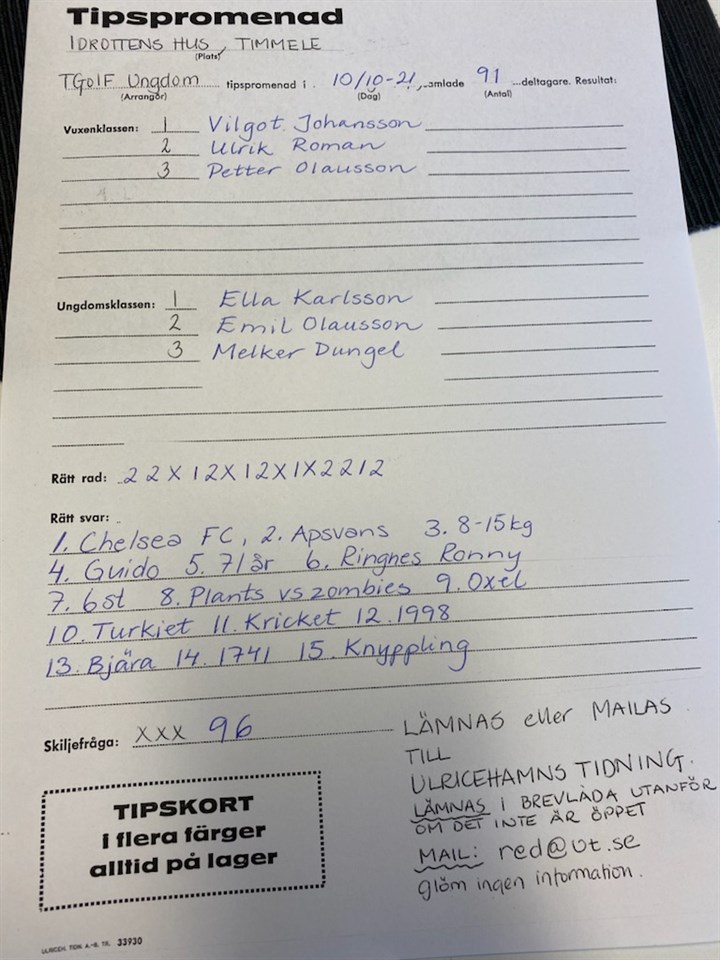 Tipspromenad
IDROTTENS HUS, TIMMELE
(Plats)
TGoIF Ungdom tipspromenad i 10/10-21, samlade 91 deltagare. Resultat:
(Arrangör) (Dag) (Antal)
Vuxenklassen: 1 Vilgot Johansson
2 Ulrik Roman
3 Petter Olausson
Ungdomsklassen: 1 Ella Karlsson
2 Emil Olausson
3 Melker Dungel
Rätt rad: 22X12X12X1X2212
Rätt svar:
1. Chelsea FC, 2. Apsvans 3. 8-15kg
4. Guido 5. 71år 6. Ringnes Ronny
7. 6st 8. Plants vs zombies 9. Oxel
10. Turkiet 11. Kricket 12. 1998
13. Bjära 14. 1741 15. Knyppling
Skiljefråga: XXX 96
LÄMNAS eller MAILAS
TILL
ULRICEHAMNS TIDNING.
LÄMNAS I BREVLÅDA UTANFÖR
OM DET INTE ÄR ÖPPET
MAIL: red@ut.se
glöm ingen information.
TIPSKORT
i flera färger
alltid på lager
ULRICEH. TIDN. A.-B. TR. 33930